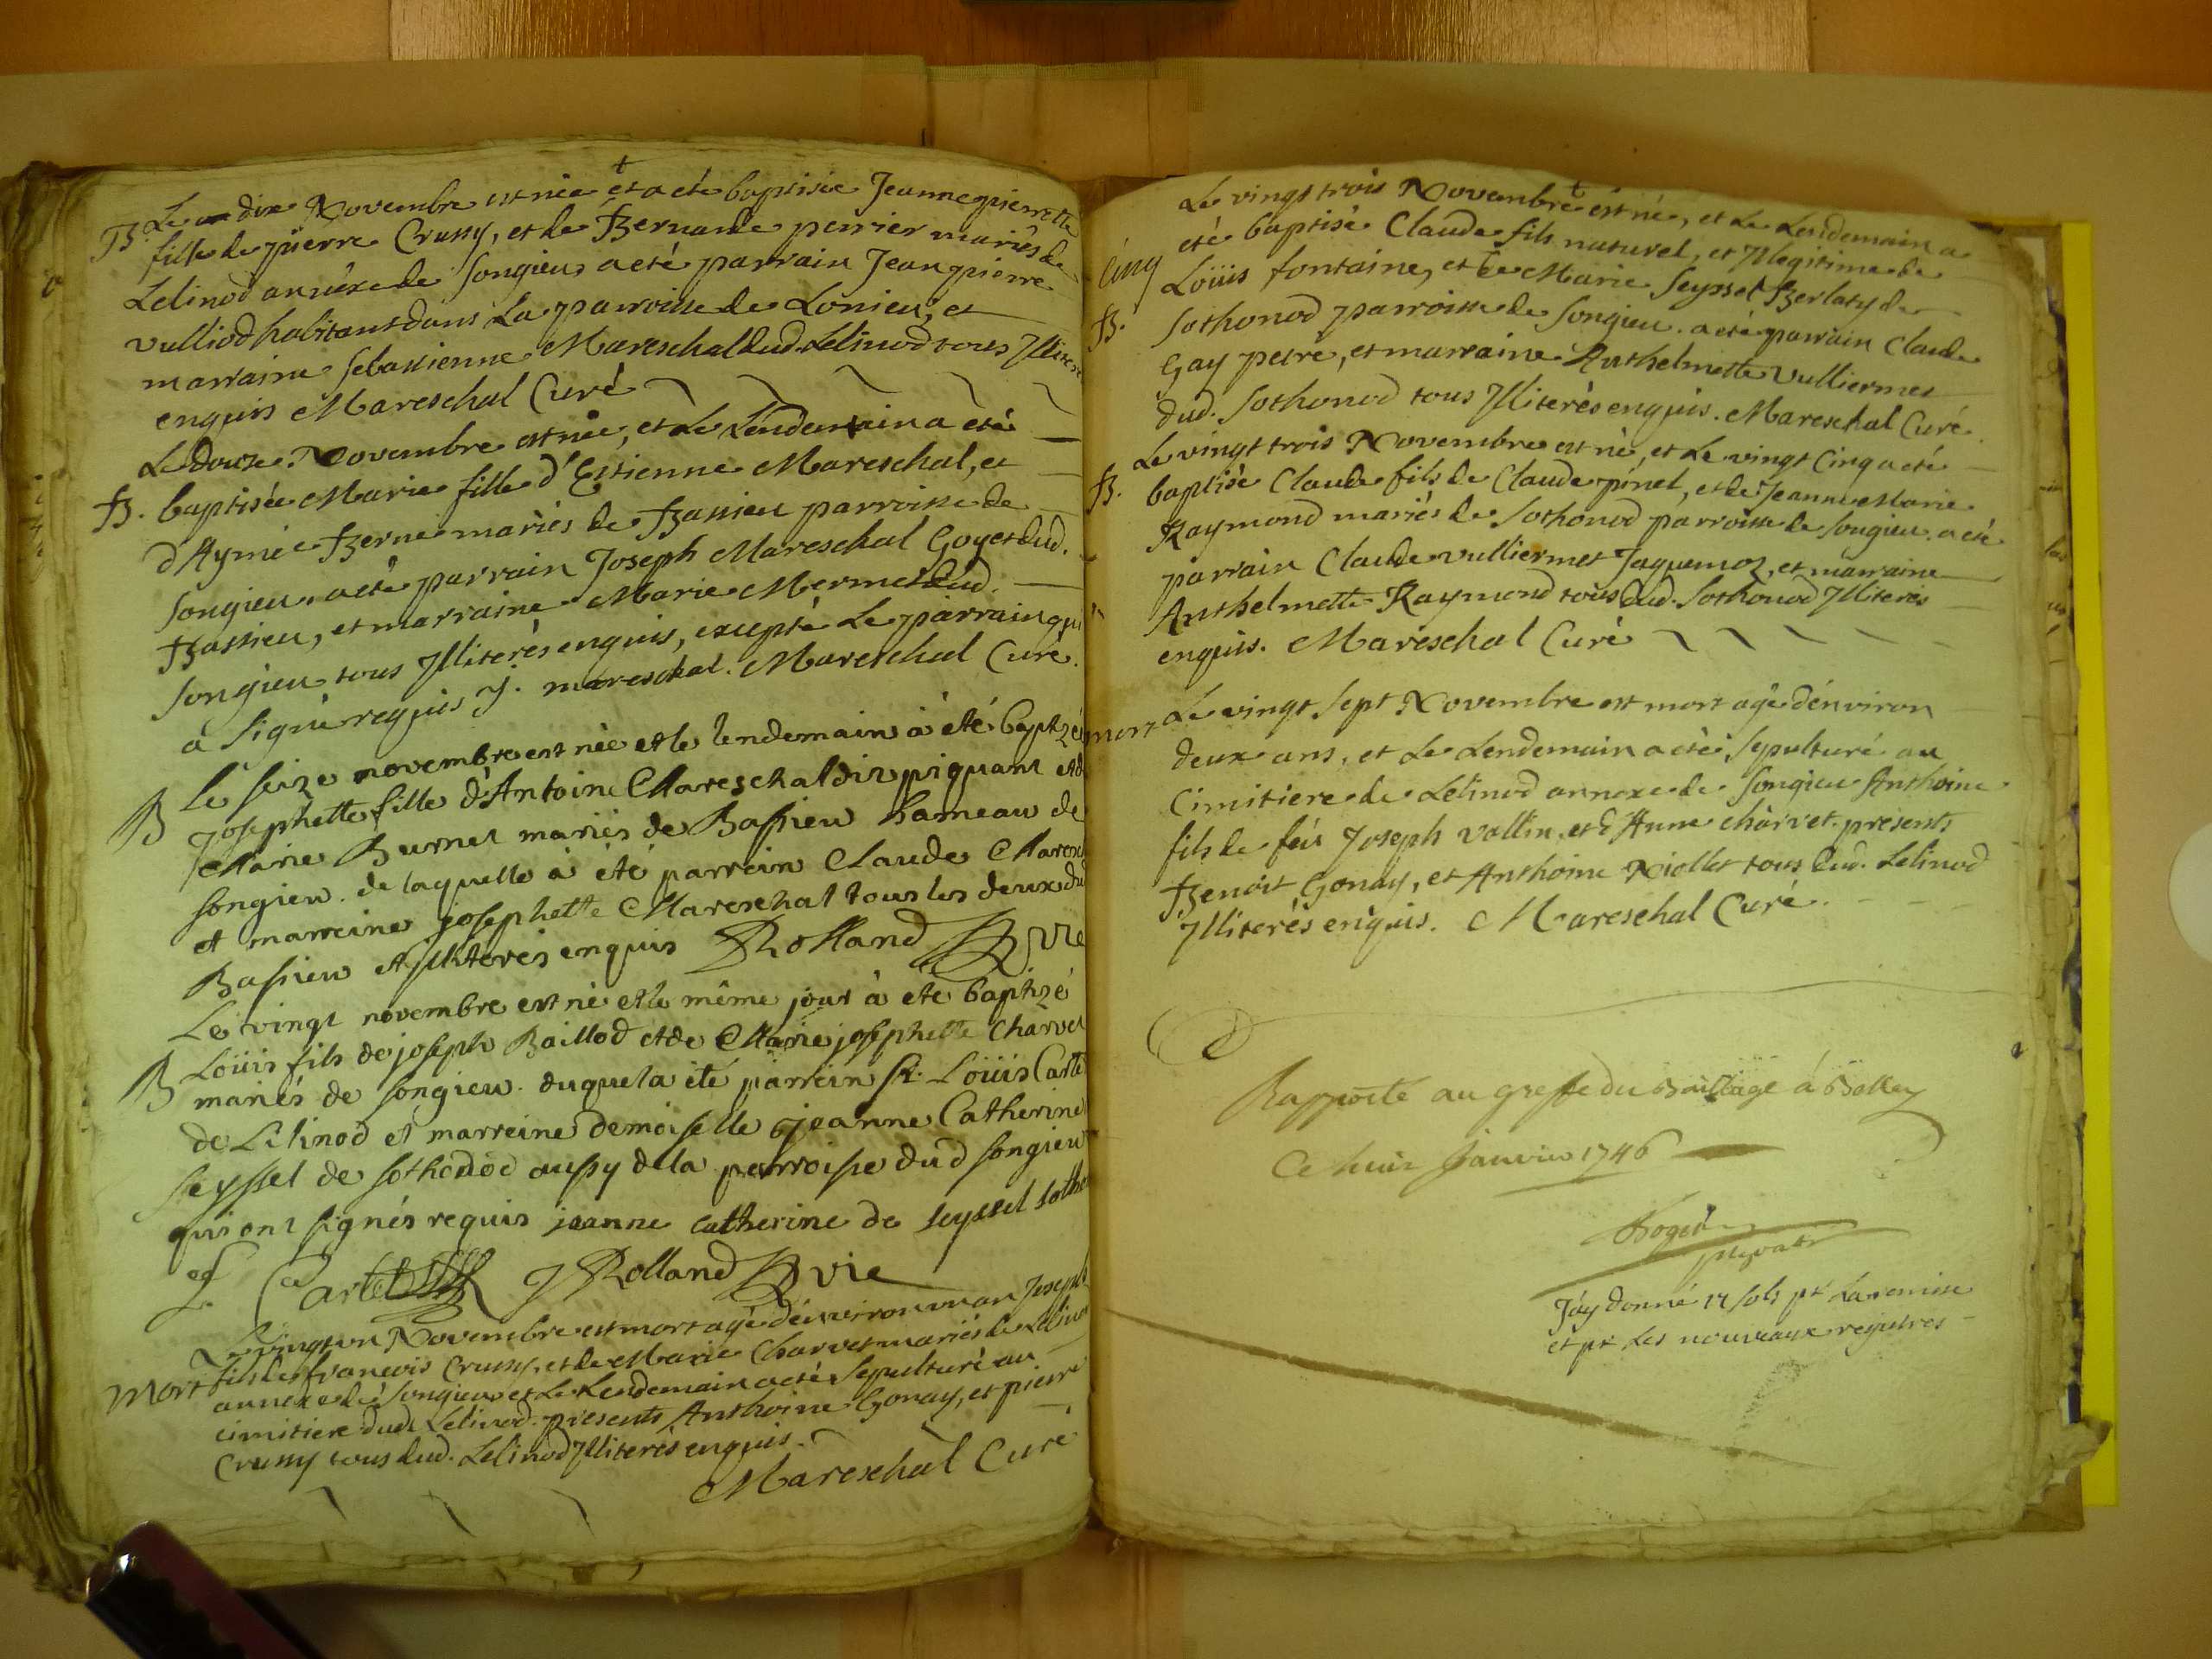 B. Le dix Novembre est née et a eté baptisée Jeanne pierrette
fille de pierre Crussy, et de Bernarde perrier mariés de
Lelinod annéxe de Songieu, a eté parrain Jean pierre
vulliod habitant dans La parroisse de Lonieu, et
marraine Sebastienne Mareschal dud. Lelinod tous Illiteré
enquis Mareschal Curé
Le douze. Novembre est née, et Le Lendemain a eté
B. baptisée Marie fille d'Estienne Mareschal, et
d'Aymée Berne mariés de Bassieu parroisse de
Songieu. a eté parrain Joseph Mareschal Goyet dud.
Bassieu, et marraine Marie Mermet dud.
Songieu tous Illiterés enquis, excepté Le parrain qui
a signé requis J. mareschal. Mareschal Curé.
le seize novembre est née et le lendemain à été baptzé
B Josephette fille d'Antoine Mareschal dit piquant et d
Marie Burnet mariés de Bassieu hameau de
Songieu. de laquelle à été parrein Claude Maresc
et marreine josephette Mareschal tous les deux dud
Bassieu et illiterés enquis Rolland vic
Le vingt novembre est né et le même jour à eté baptizé
B Loüis fils de joseph Baillod et de Marie josephette Chârvet
mariés de Songieu. duquel a été parrein Sr. Loüis Carte
de Lelinod et marreine demoiselle jeanne Catherine
Seyssel de Sothonod aussy de la parroisse dud Songieu
qui ont signés requis jeanne catherine de seyssel sotho
L. Cartet J Rolland vic
Le vingt un Novembre est mort agé d'environ un an Joseph
Mort fils de francois Crussy, et de Marie Charvet mariés de Lelinod
annexe de Songieu et Le Lendemain a eté Sepulturé au
cimitiere dud. Lelinod. presents Anthoine Gonay, et pierre
Crussy tous dud. Lelinod Illiterés enquis.
Mareschal Curé
Le vingt trois Novembre est né, et Le Lendemain a
eté baptisé Claude fils naturel, et Illegitime de
Cinq Loüis fontaine, et de Marie Seyssel Berlaty de
B. Sothonod parroisse de Songieu. a eté parrain Claude
Gay petre, et marraine Anthelmette Vulliermet
dud. Sothonod tous Illiterés enquis. Mareschal Curé.
Le vingt trois Novembre est né, et Le vingt Cinq a eté
B. baptisé Claude fils de Claude pinet, et de Jeanne Marie
Raymond mariés de Sothonod parroisse de Songieu. a eté
parrain Claude vulliermet Jaquemoz, et marraine
Anthelmette Raymond tous dud. Sothonod Illiterés
enquis. Mareschal Curé
mort Le vingt Sept Novembre est mort agé d'environ
deux ans, et Le Lendemain a eté Sepulturé au
Cimitiere de Lelinod annexe de Songieu Anthoine
fils de feu Joseph Vallin, et d'Anne chârvet. presents
Benoit Gonay, et Anthoine Niollet tous dud. Lelinod
Illiterés enquis. Mareschal Curé.
Rapporté au greffe du Bailliage á Belley
Ce huit Janvier 1746
Roged
J'áy donné 17 sols pr La remise
et pr Les nouveaux regîstres